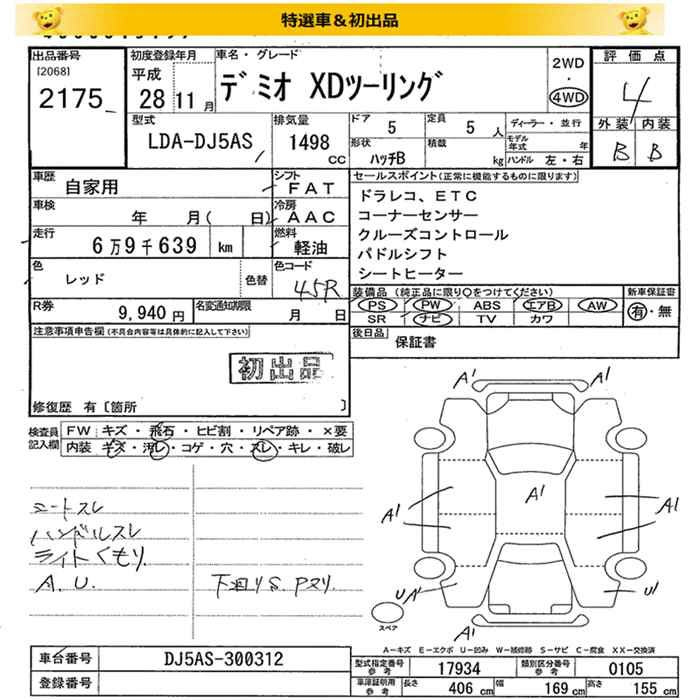 特選車＆初出品
出品番号
[2068]
2175
初度登録年月
平成
28 11月
車名・グレード
デミオ XDツーリング
2WD
・
4WD
評価点
4
外装 内装
B B
型式
LDA-DJ5AS
排気量
1498
cc
ドア
5
定員
5 人
形状
ハッチB
積載
kg
ディーラー・並行
モデル年式 年
ハンドル 左・右
車歴
自家用
シフト
FAT
車検
年 月( 日)
冷房
AAC
走行
6万9千639 km
燃料
軽油
色
レッド
色替
色コード
45R
R券
9,940円
名変通知期限
月 日
セールスポイント(正常に機能するものに限ります)
ドラレコ、ETC
コーナーセンサー
クルーズコントロール
パドルシフト
シートヒーター
装備品 (純正品に限り○をつけてください)
PS PW ABS エアB AW
SR ナビ TV カワ
新車保証書
有・無
後日品
保証書
注意事項申告欄(不具合内容等は具体的に記入して下さい)
初出品
修復歴 有〔箇所 〕
検査員
記入欄
FW キズ・飛石・ヒビ割・リペア跡・×要
内装 キズ・汚レ・コゲ・穴・スレ・キレ・破レ
シートスレ
ハンドルスレ
ライトくもり.
A.U.
下廻りS.Pヌリ.
A1 A1
A1
A1 A1
A1 A1
U A1 U1
A1
スペア
A-キズ E-エクボ U-凹み W-補修跡 S-サビ C-腐食 XX-交換済
車台番号
DJ5AS-300312
登録番号
型式指定番号
参考
17934
類別区分番号
参考
0105
車庫証明用
参考
長さ 406 cm 幅 169 cm 高さ 155 cm